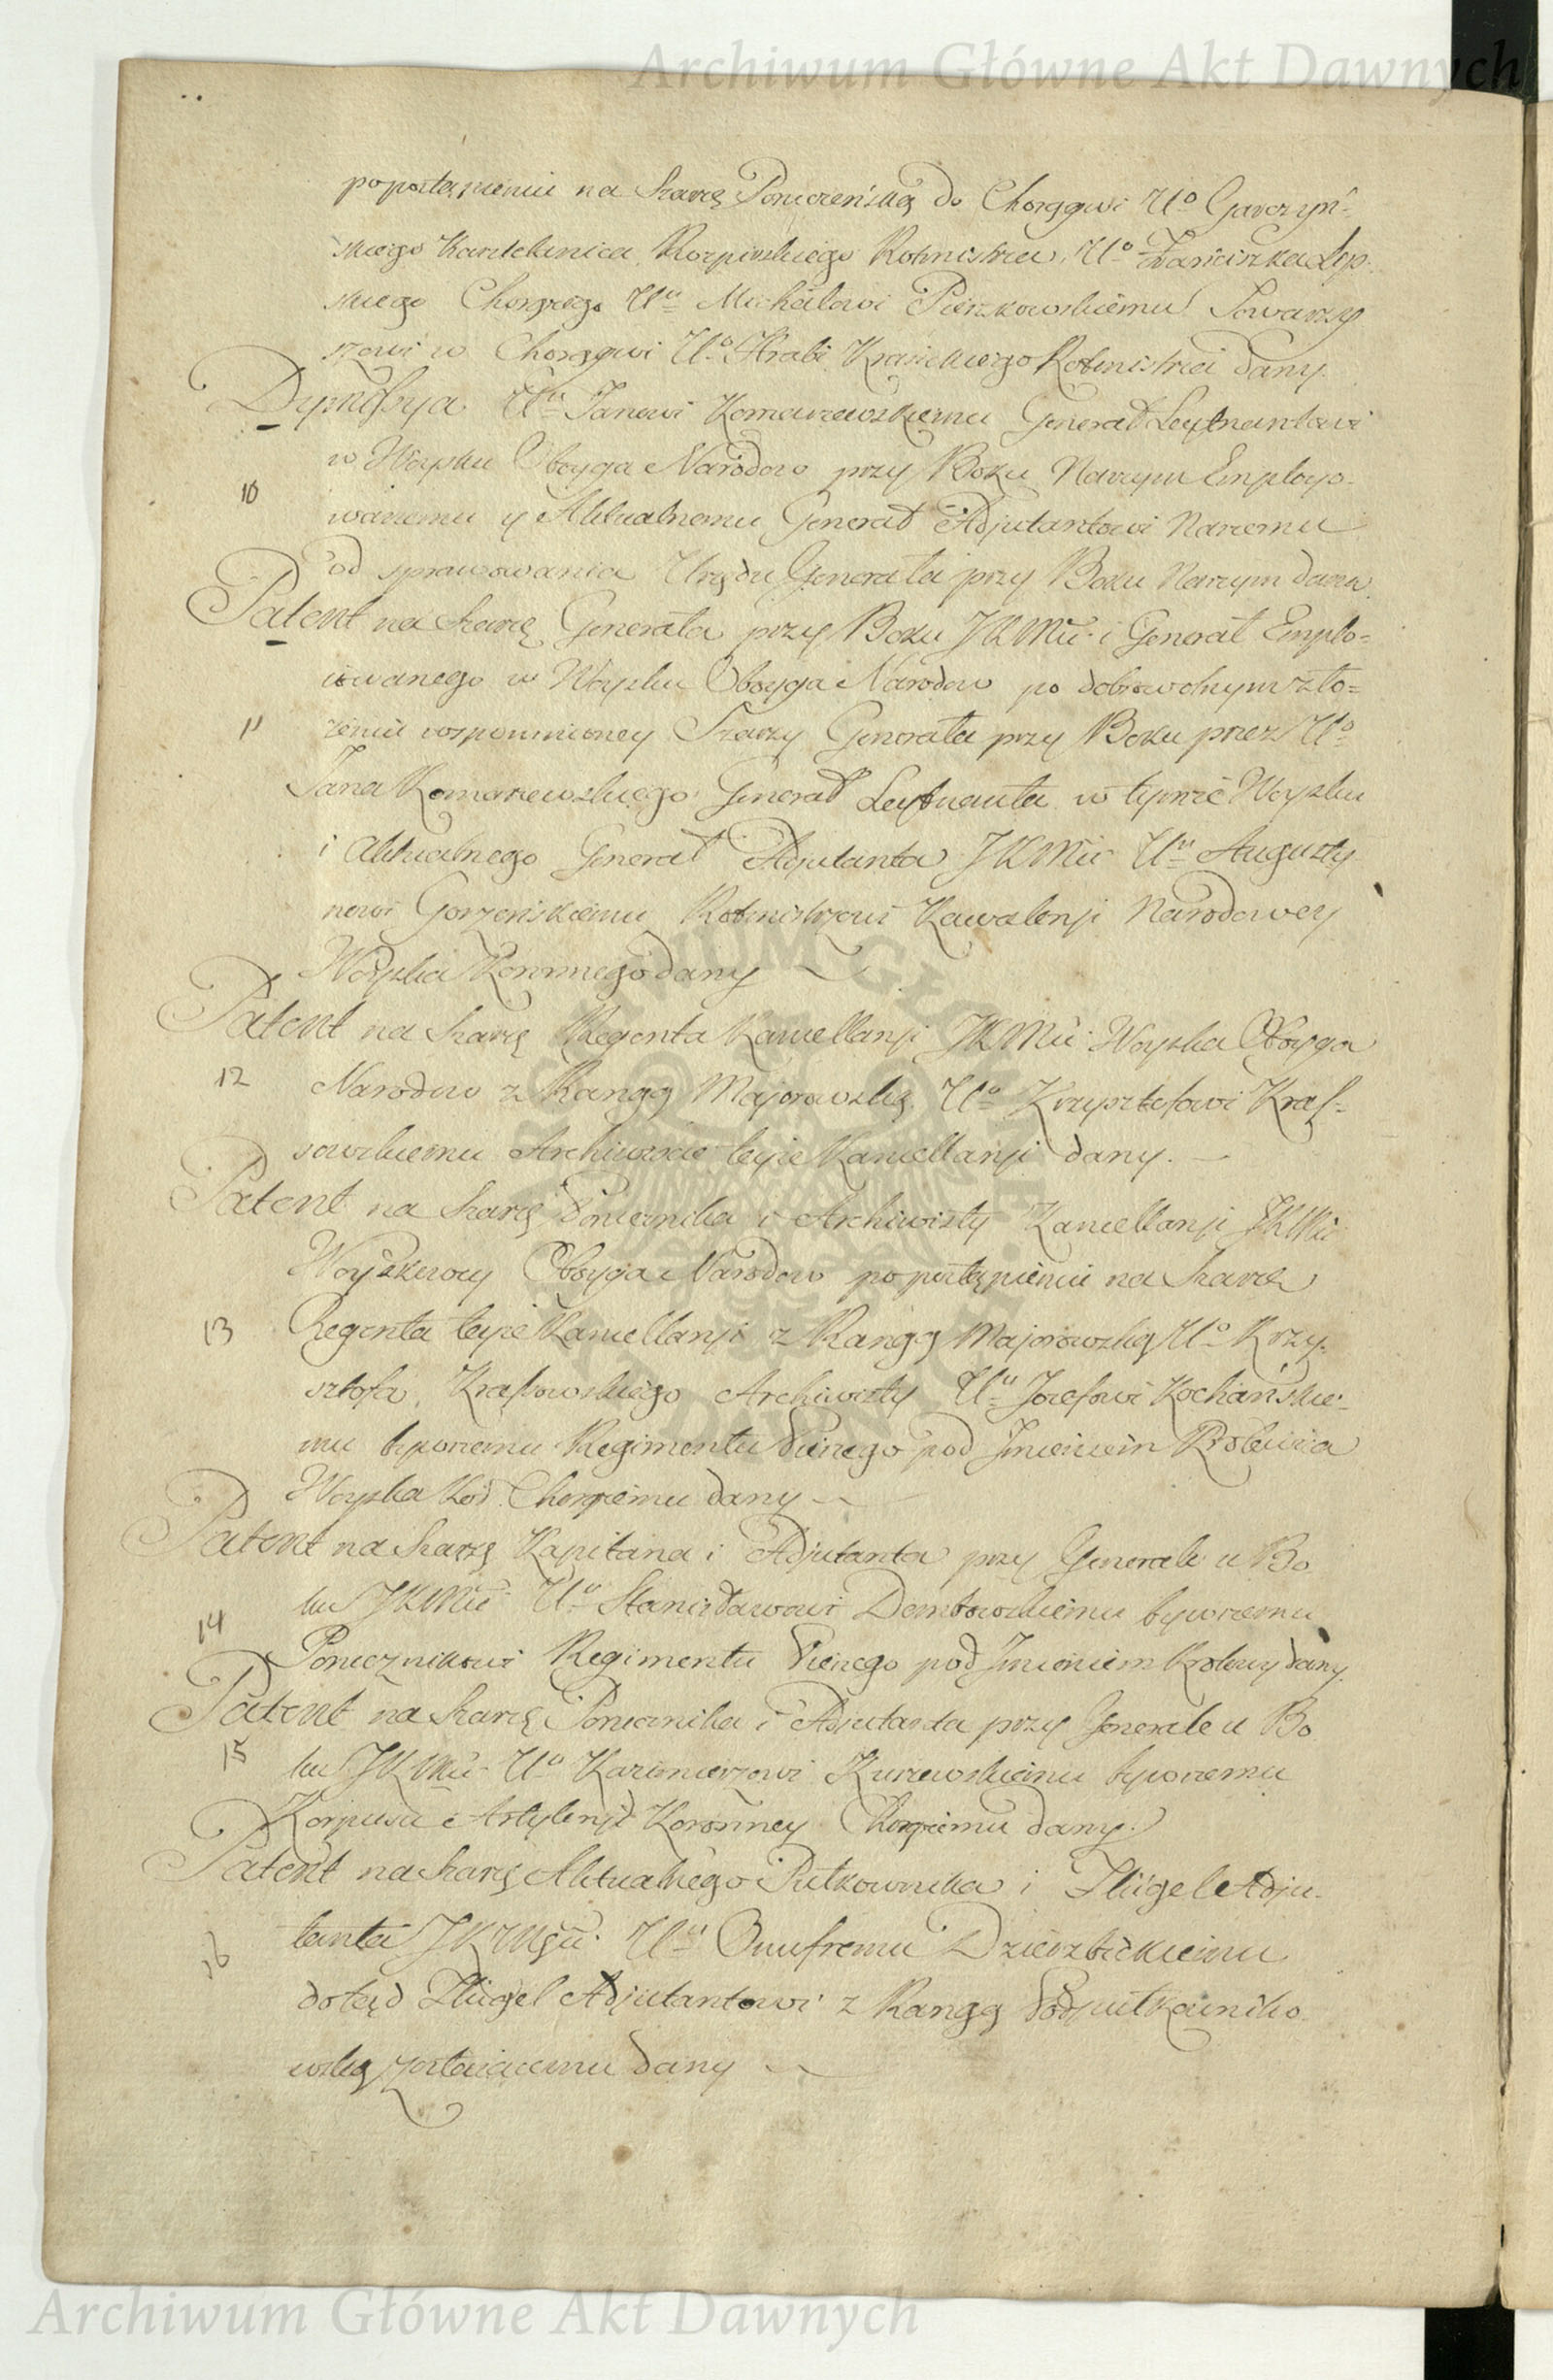 Archiwum Główne Akt Dawnych
popostąpieniu na Szarżę Poruczeńską do Chorągwi Uo Garczyń-
skiego Kasztelanica Rozpirskiego Rotmistrza, Uo Franciszka Lip
skiego Chorążego Uu Michałowi Pieszkowskiemu Towarzy
szowi w Chorągwi Uo Hrabi Krasickiego Rotmistrza dany.
Dymissya Uu Janowi Komarzewskiemu Generał Leytnantowi
w Woysku Oboyga Narodow przy Boku Naszym Employo-
10
wanemu y Aktualnemu Generał Adjutantowi Naszemu
od sprawowania Urzędu Generała przy Boku Naszym dana.
Patent na Szarżę Generała przy Boku JKMci i Generał Emplo=
iowanego w Woysku Oboyga Narodow po dobrowolnym zło=
11
żeniu wspomnioney Szarży Generała przy Boku przez Uo
Jana Komarzewskiego Generał Leytnanta w tymże Woysku
i Aktualnego Generał Adjutanta JKMci Uu Augusty
nowi Gorzeńskiemu Rotmistrzowi Kawalerji Narodowey
Woyska Koronnego dany
Patent na Szarżę Regenta Kancellarji JKMci Woyska Oboyga
12
Narodow z Rangą Majorowską Uu Krzysztofowi Kras=
sowskiemu Archiwiście teyże Kancellarji dany.
Patent na Szarżę Porucznika i Archiwisty Kancellarji JKMci
Woyskowey Oboyga Narodow po postąpieniu na Szarżę
13
Regenta teyże Kancellarji z Rangą Majorowską Uo Krzy-
sztofa Krassowskiego Archiwisty Uu Jozefowi Kochańskie-
mu bywszemu Regimentu Pieszego pod Imieniem Krolewica
Woyska Kor. Chorążemu dany
Patent na Szarżę Kapitana i Adjutanta przy Generale u Bo
14
ku JKMci Uu Stanisławowi Dembowskiemu bywszemu
Porucznikowi Regimentu Pieszego pod Imieniem Krolowy dany.
Patent na Szarżę Porucznika i Adjutanta przy Generale u Bo
15
ku JKMci Uu Kazimierzowi Kuczewskiemu bywszemu
Korpusu Artylerji Koronney Chorążemu dany.
Patent na Szarżę Aktualnego Pułkownika i Fligel Adju-
16
tanta JKMści Uu Onufremu Dzierzbickiemu
dotąd Fligel Adjutantowi z Rangą Podpułkowniko
wską zostaiącemu dany
Archiwum Główne Akt Dawnych